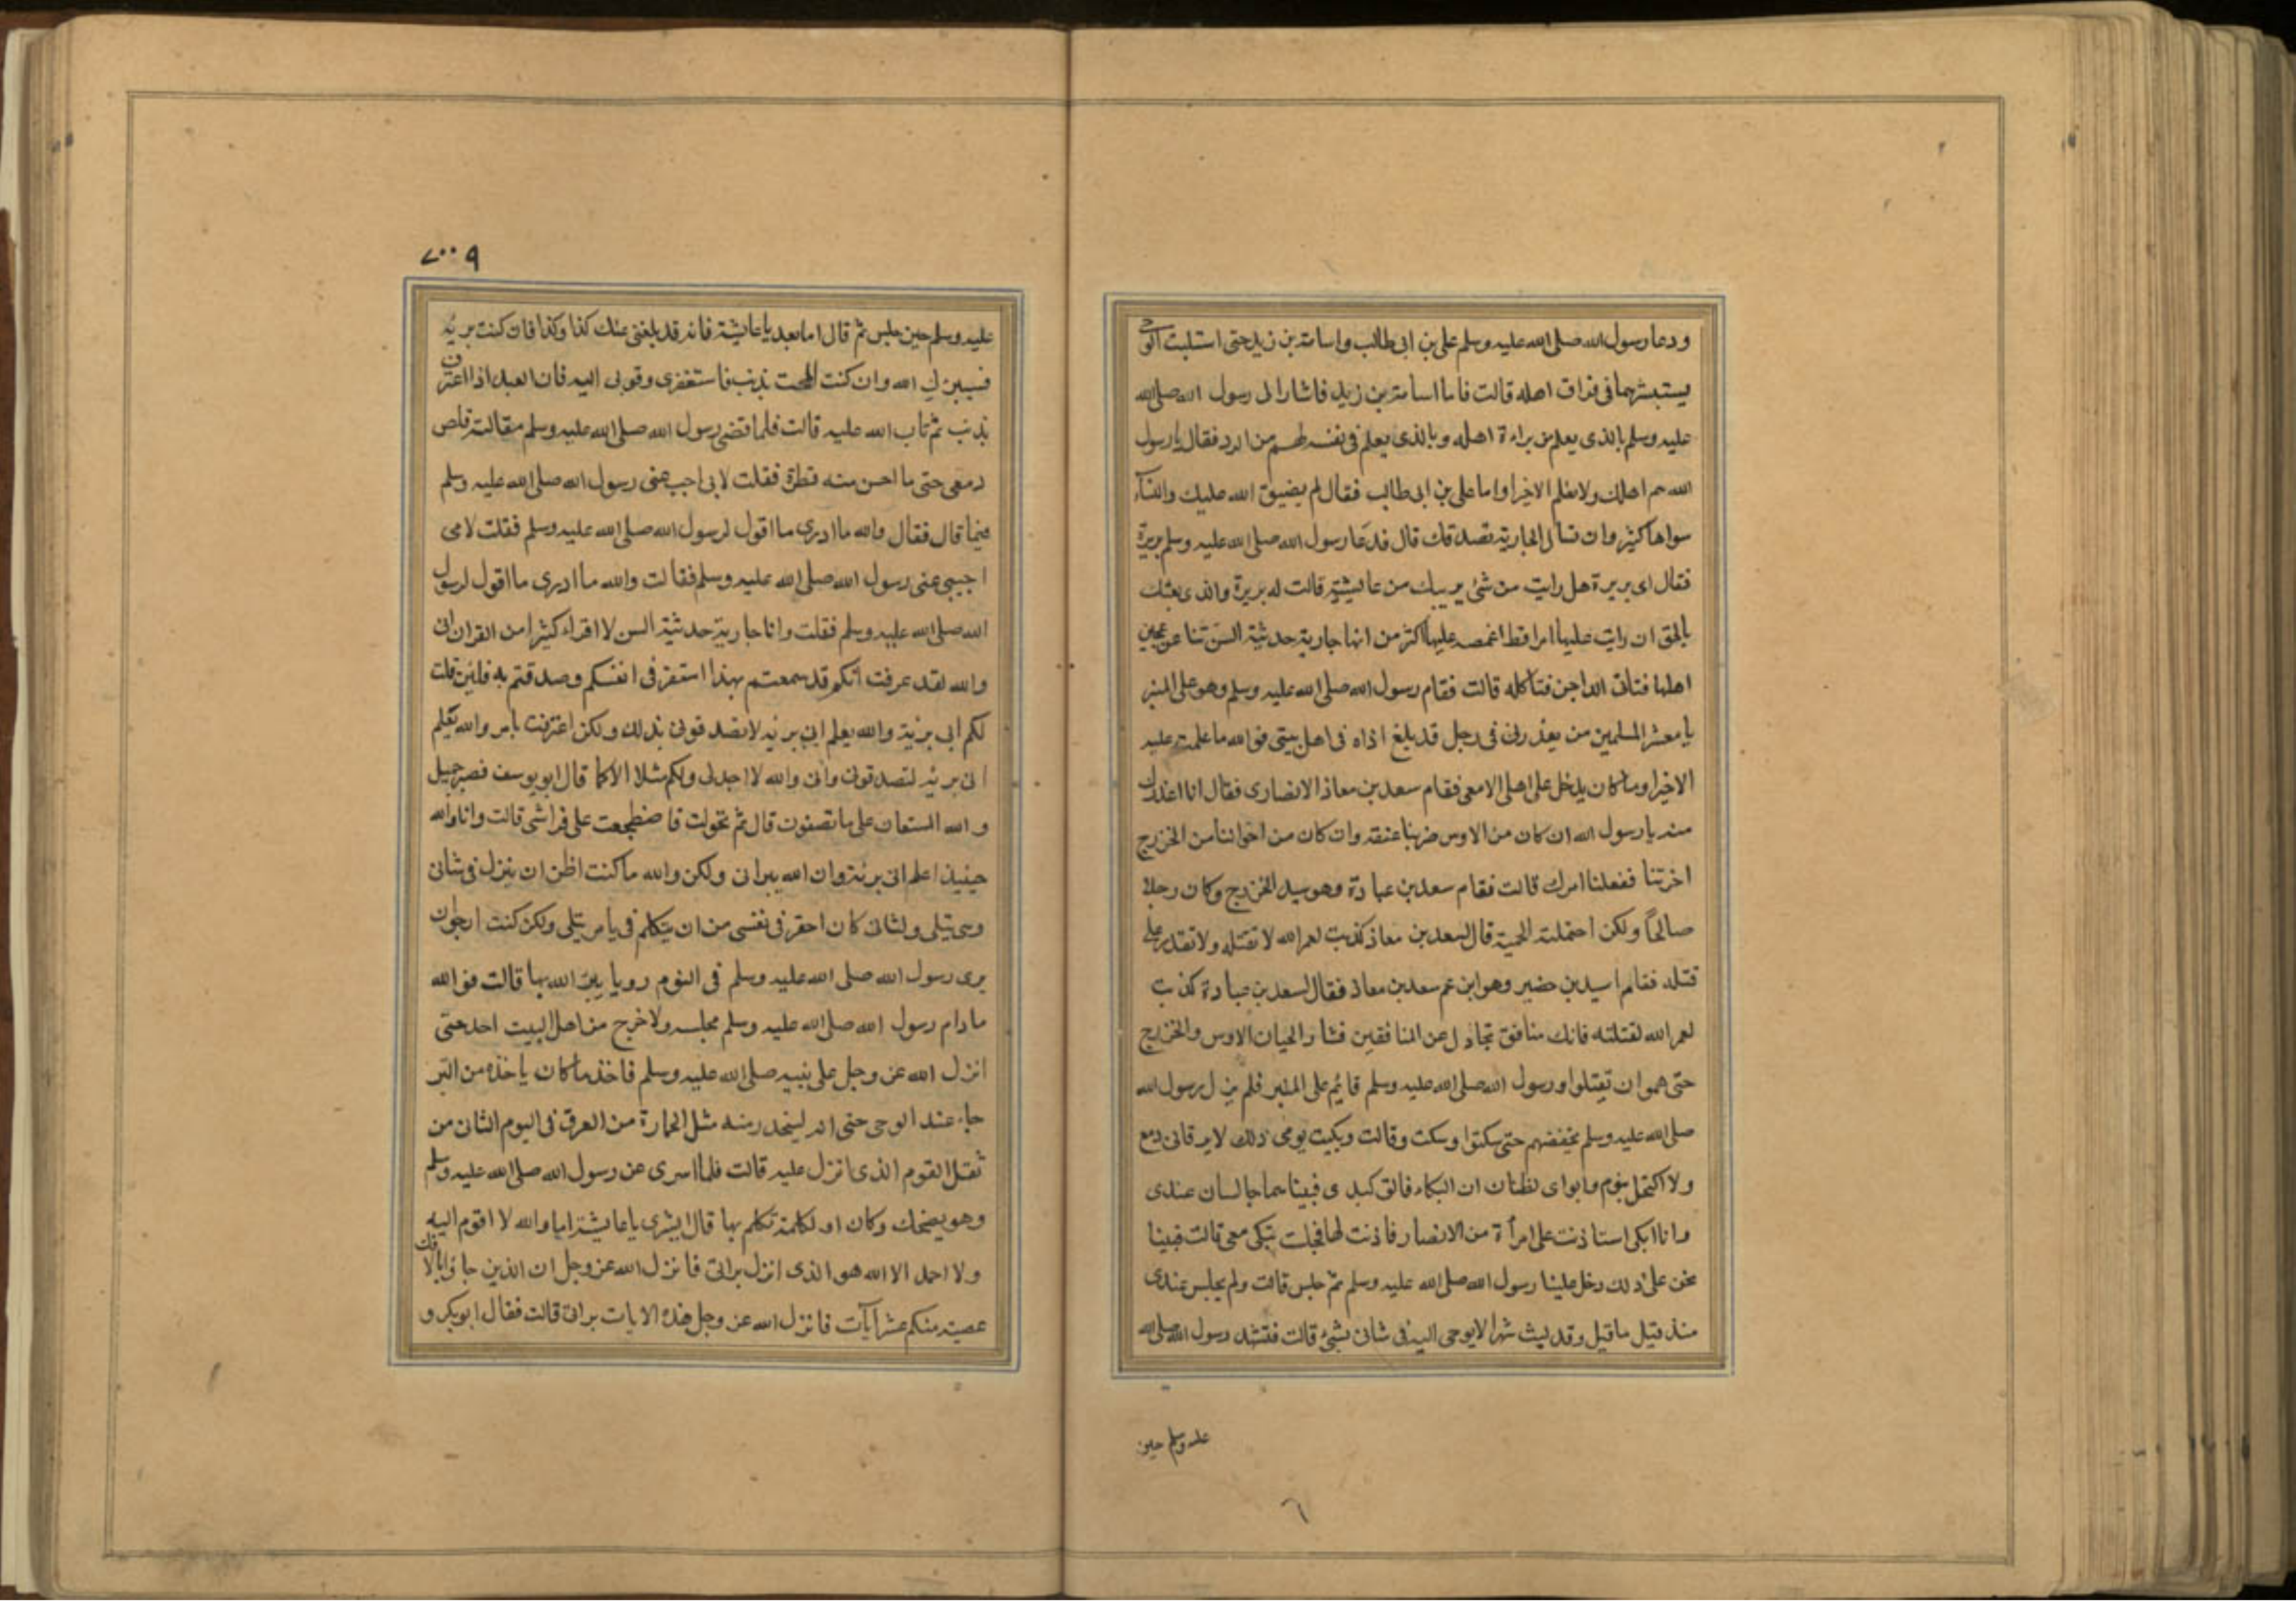 ودعا رسول الله صلى الله عليه وسلم على بن ابى طالب واسامة بن زيد حتى استلبت الوحى
يستبشرهما فى فراق اهله قالت فاما اسامة بن زيد فاشار الى رسول الله صلى الله
عليه وسلم بالذى يعلم من براءة اهله وبالذى يعلم فى نفسه لهم من الود فقال يا رسول
الله هم اهلك ولا نعلم الا خيرا واما على بن ابى طالب فقال لم يضيق الله عليك والنساء
سواها كثير وان تسال الجارية تصدقك قال فدعا رسول الله صلى الله عليه وسلم بريرة
فقال اى بريرة هل رايت من شئ يريبك من عايشة قالت له بريرة والذى بعثك
بالحق ان رايت عليها امرا قط اغمصه عليها اكثر من انها جارية حديثة السن تنا عن عجين
اهلها فتاتى الداجن فتاكله قالت فقام رسول الله صلى الله عليه وسلم وهو على المنبر
يا معشر المسلمين من يعذرنى فى رجل قد بلغ اذاه فى اهل بيتى فو الله ما علمت عليه
الا خيرا وما كان يدخل على اهلى الا معى فقام سعد بن معاذ الانصارى فقال انا اعذرك
منه يا رسول الله ان كان من الاوس ضربنا عنقه وان كان من اخواننا من الخزرج
اخرتنا ففعلنا امرك قالت فقام سعد بن عبادة وهو سيد الخزرج وكان رجلا
صالحاً ولكن احتملته الحمية قال لسعد بن معاذ كذبت لعمر الله لا تقتله ولا تقدر على
قتله فقام اسيد بن حضير وهو ابن عم سعد بن معاذ فقال لسعد بن عبادة كذبت
لعمر الله لقتلنه فانك منافق تجادل عن المنافقين فثار الحيان الاوس والخزرج
حتى هموا ن تقتلوا ورسول الله صلى الله عليه وسلم قايم على المنبر فلم يزل رسول الله
صلى الله عليه وسلم يخفضهم حتى سكتوا وسكت وقالت وبكيت يومى ذلك لا يرقانى دمع
ولا اكتحل بنوم وابواى يظنان ان البكاء فالق كبدى فبينا هما جالسان عندى
وانا ابكى استاذنت على امرأة من الانصار فاذنت لها فجلت تبكى معى قالت فبينا
نحن على ذلك دخل علينا رسول الله صلى الله عليه وسلم ثم جلس قالت ولم يجلس عندى
منذ قيل ما قيل وقد لبث شهرا لا يوحى اليه فى شانى بشئ قالت فتشهد رسول الله صلى الله
عليه وسلم حين
٦
٢٠٠٩
عليه وسلم حين جلس ثم قال اما بعد يا عايشة فانه قد بلغنى عنك كذا وكذا فان كنت بريئه
فسيبرئك الله وان كنت الممت بذنب فاستغفرى وتوبى اليه فان العبد اذا اعترف
بذنب ثم تاب الله عليه قالت فلما قضى رسول الله صلى الله عليه وسلم مقالته قلص
دمعى حتى ما احس منه قطرة فقلت لابى اجب عنى رسول الله صلى الله عليه وسلم
فيما قال فقال والله ما ادرى ما اقول لرسول الله صلى الله عليه وسلم فقلت لامى
اجيبى عنى رسول الله صلى الله عليه وسلم فقالت والله ما ادرى ما اقول لرسول
الله صلى الله عليه وسلم فقلت وانا جارية حديثة السن لا اقراء كثيرا من القران انى
والله لقد عرفت انكم قد سمعتم بهذا استقر فى انفسكم وصدقتم به فلئن قلت
لكم انى بريئة والله يعلم انى بريئه لا تصدقونى بذلك ولكن اعترفت بامر والله يعلم
انى بريئه لتصدقونى وانى والله لا اجد لى ولكم مثلا الا كما قال ابو يوسف فصبر جميل
والله المستعان على ما تصفون قال ثم تحولت فاضطجعت على فراشى قالت وانا والله
حينيذ اعلم انى بريئة وان الله يبرانى ولكن والله ما كنت اظن ان ينزل فى شانى
وحى يتلى ولشانى كان احقر فى نفسى من ان يتكلم فى يامر يتلى ولكن كنت ارجو ان
يرى رسول الله صلى الله عليه وسلم فى النوم رويا يبرئ الله بها قالت فو الله
ما دام رسول الله صلى الله عليه وسلم مجلسه ولا خرج من اهل البيت احد حتى
انزل الله عز وجل على نبيه صلى الله عليه وسلم فاخذ ما كان ياخذه من البر
حاء عند الوحى حتى انه ليتحدر منه مثل الجمارة من العرق فى اليوم الثان من
ثقل القوم الذى انزل عليه قالت فلما اسرى عن رسول الله صلى الله عليه وسلم
وهو يضحك وكان اول كلمة تكلم بها قال ابشرى يا عايشة اما والله لا اقوم اليه
ولا احمد الا الله هو الذى انزل براتى فانزل الله عز وجل ان الذين جاؤا بالافك
عصبة منكم عشر آيات فانزل الله عز وجل هذه الايات براتى قالت فقال ابو بكر و